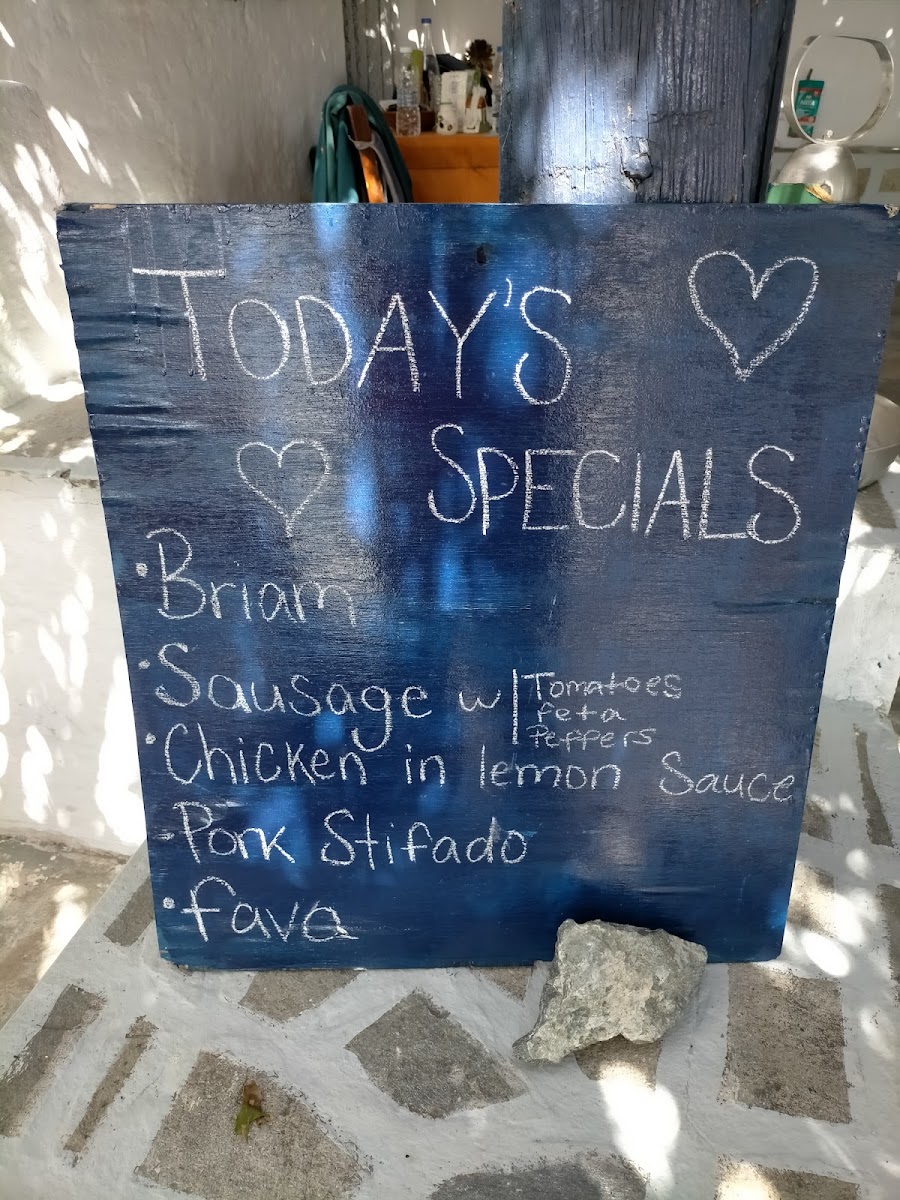 TODAY'S
SPECIALS
• Briam
• Sausage w/ Tomatoes
feta
Peppers
• Chicken in lemon Sauce
- Pork Stifado
• fava